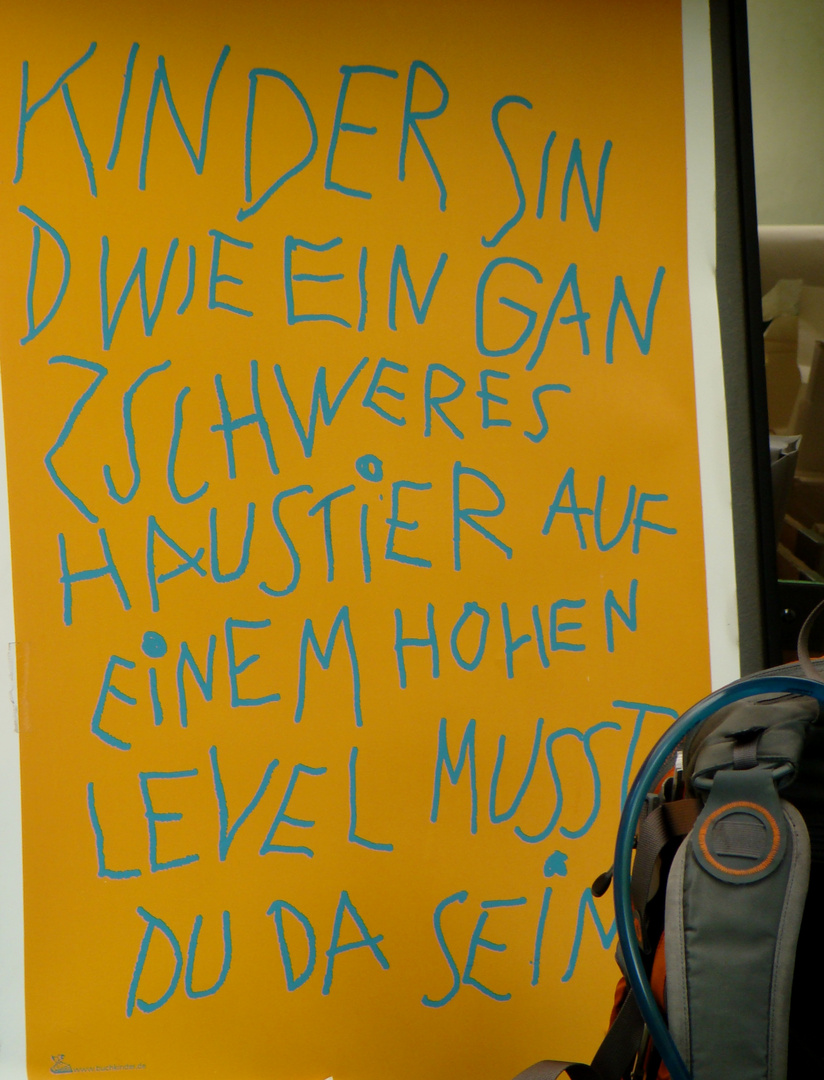 KINDER SIN
D WIE EIN GAN
Z SCHWERES
HAUSTiER AUF
EiNEM HOHEN
LEVEL MUSST
DU DA SEiN
www.buchkinder.de